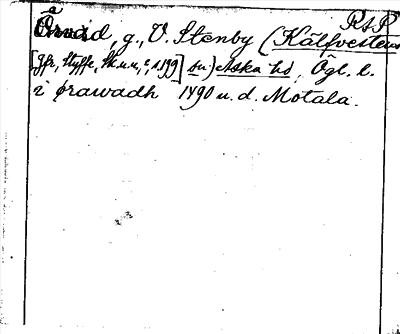 RAP
Örad, g., V. Stenby (Kälfvestens
[jfr, Styffe, Sk. u. u., s. 199] sn) Aska hd, Ögl. l.
i ørawadh 1490 u. d. Motala.